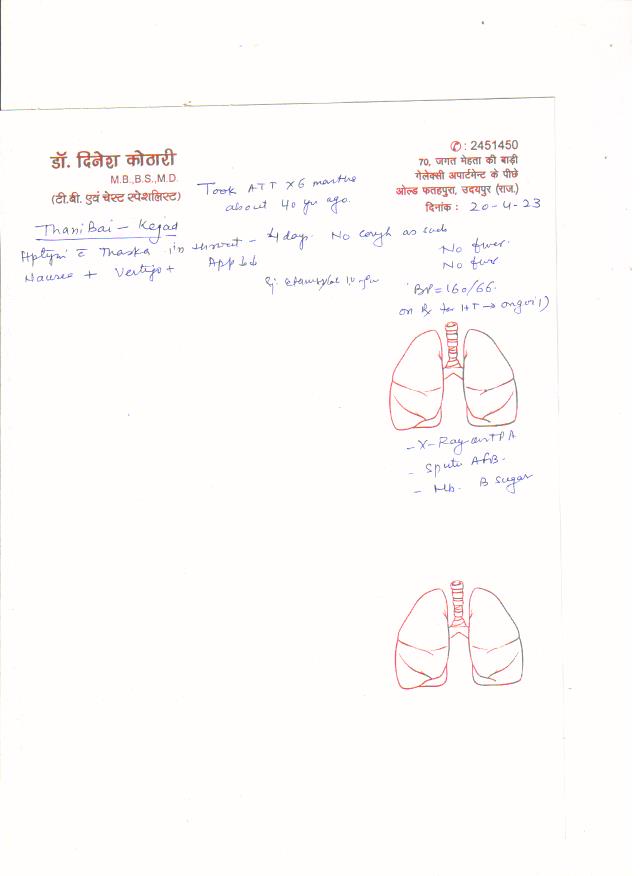 डॉ. दिनेश कोठारी
M.B.,B.S.,M.D.
(टी.बी. एवं चेस्ट स्पेशलिस्ट)
✆ : 2451450
70, जगत मेहता की बाड़ी
गेलेक्सी अपार्टमेन्ट के पीछे
ओल्ड फतहपुरा, उदयपुर (राज.)
दिनांक : 20-4-23
Took ATT x6 months
about 40 yr ago.
ThaniBai - Kejad
Thaska in throat - 4 days. No cough as such
Nausea + Vertigo + App ↓↓
No fever.
BP = 160/66.
on Rx for HT → ongoing
- X-Ray PA
- Sputu AFB.
- Hb. B sugar